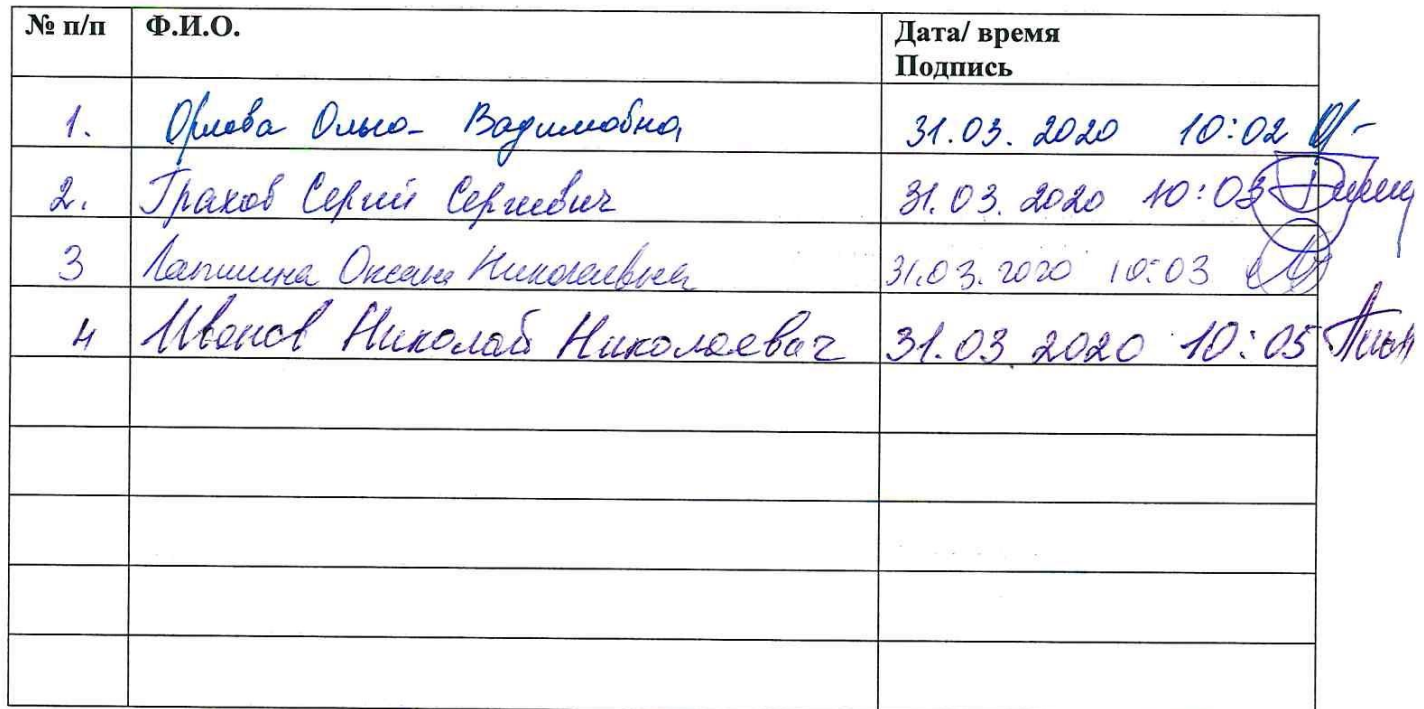 № п/п Ф.И.О. Дата/ время
Подпись
1. Орлова Ольга Вадимовна 31.03.2020 10:02
2. Грахов Сергей Сергеевич 31.03.2020 10:03
3 Лапшина Оксана Николаевна 31.03.2020 10:03
4 Иванов Николай Николаевич 31.03.2020 10:05